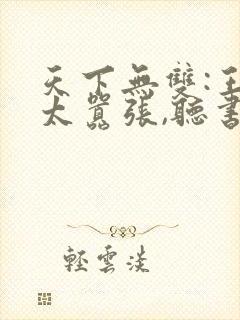 天下無雙:王
太囂張,聽書
輕雲淡